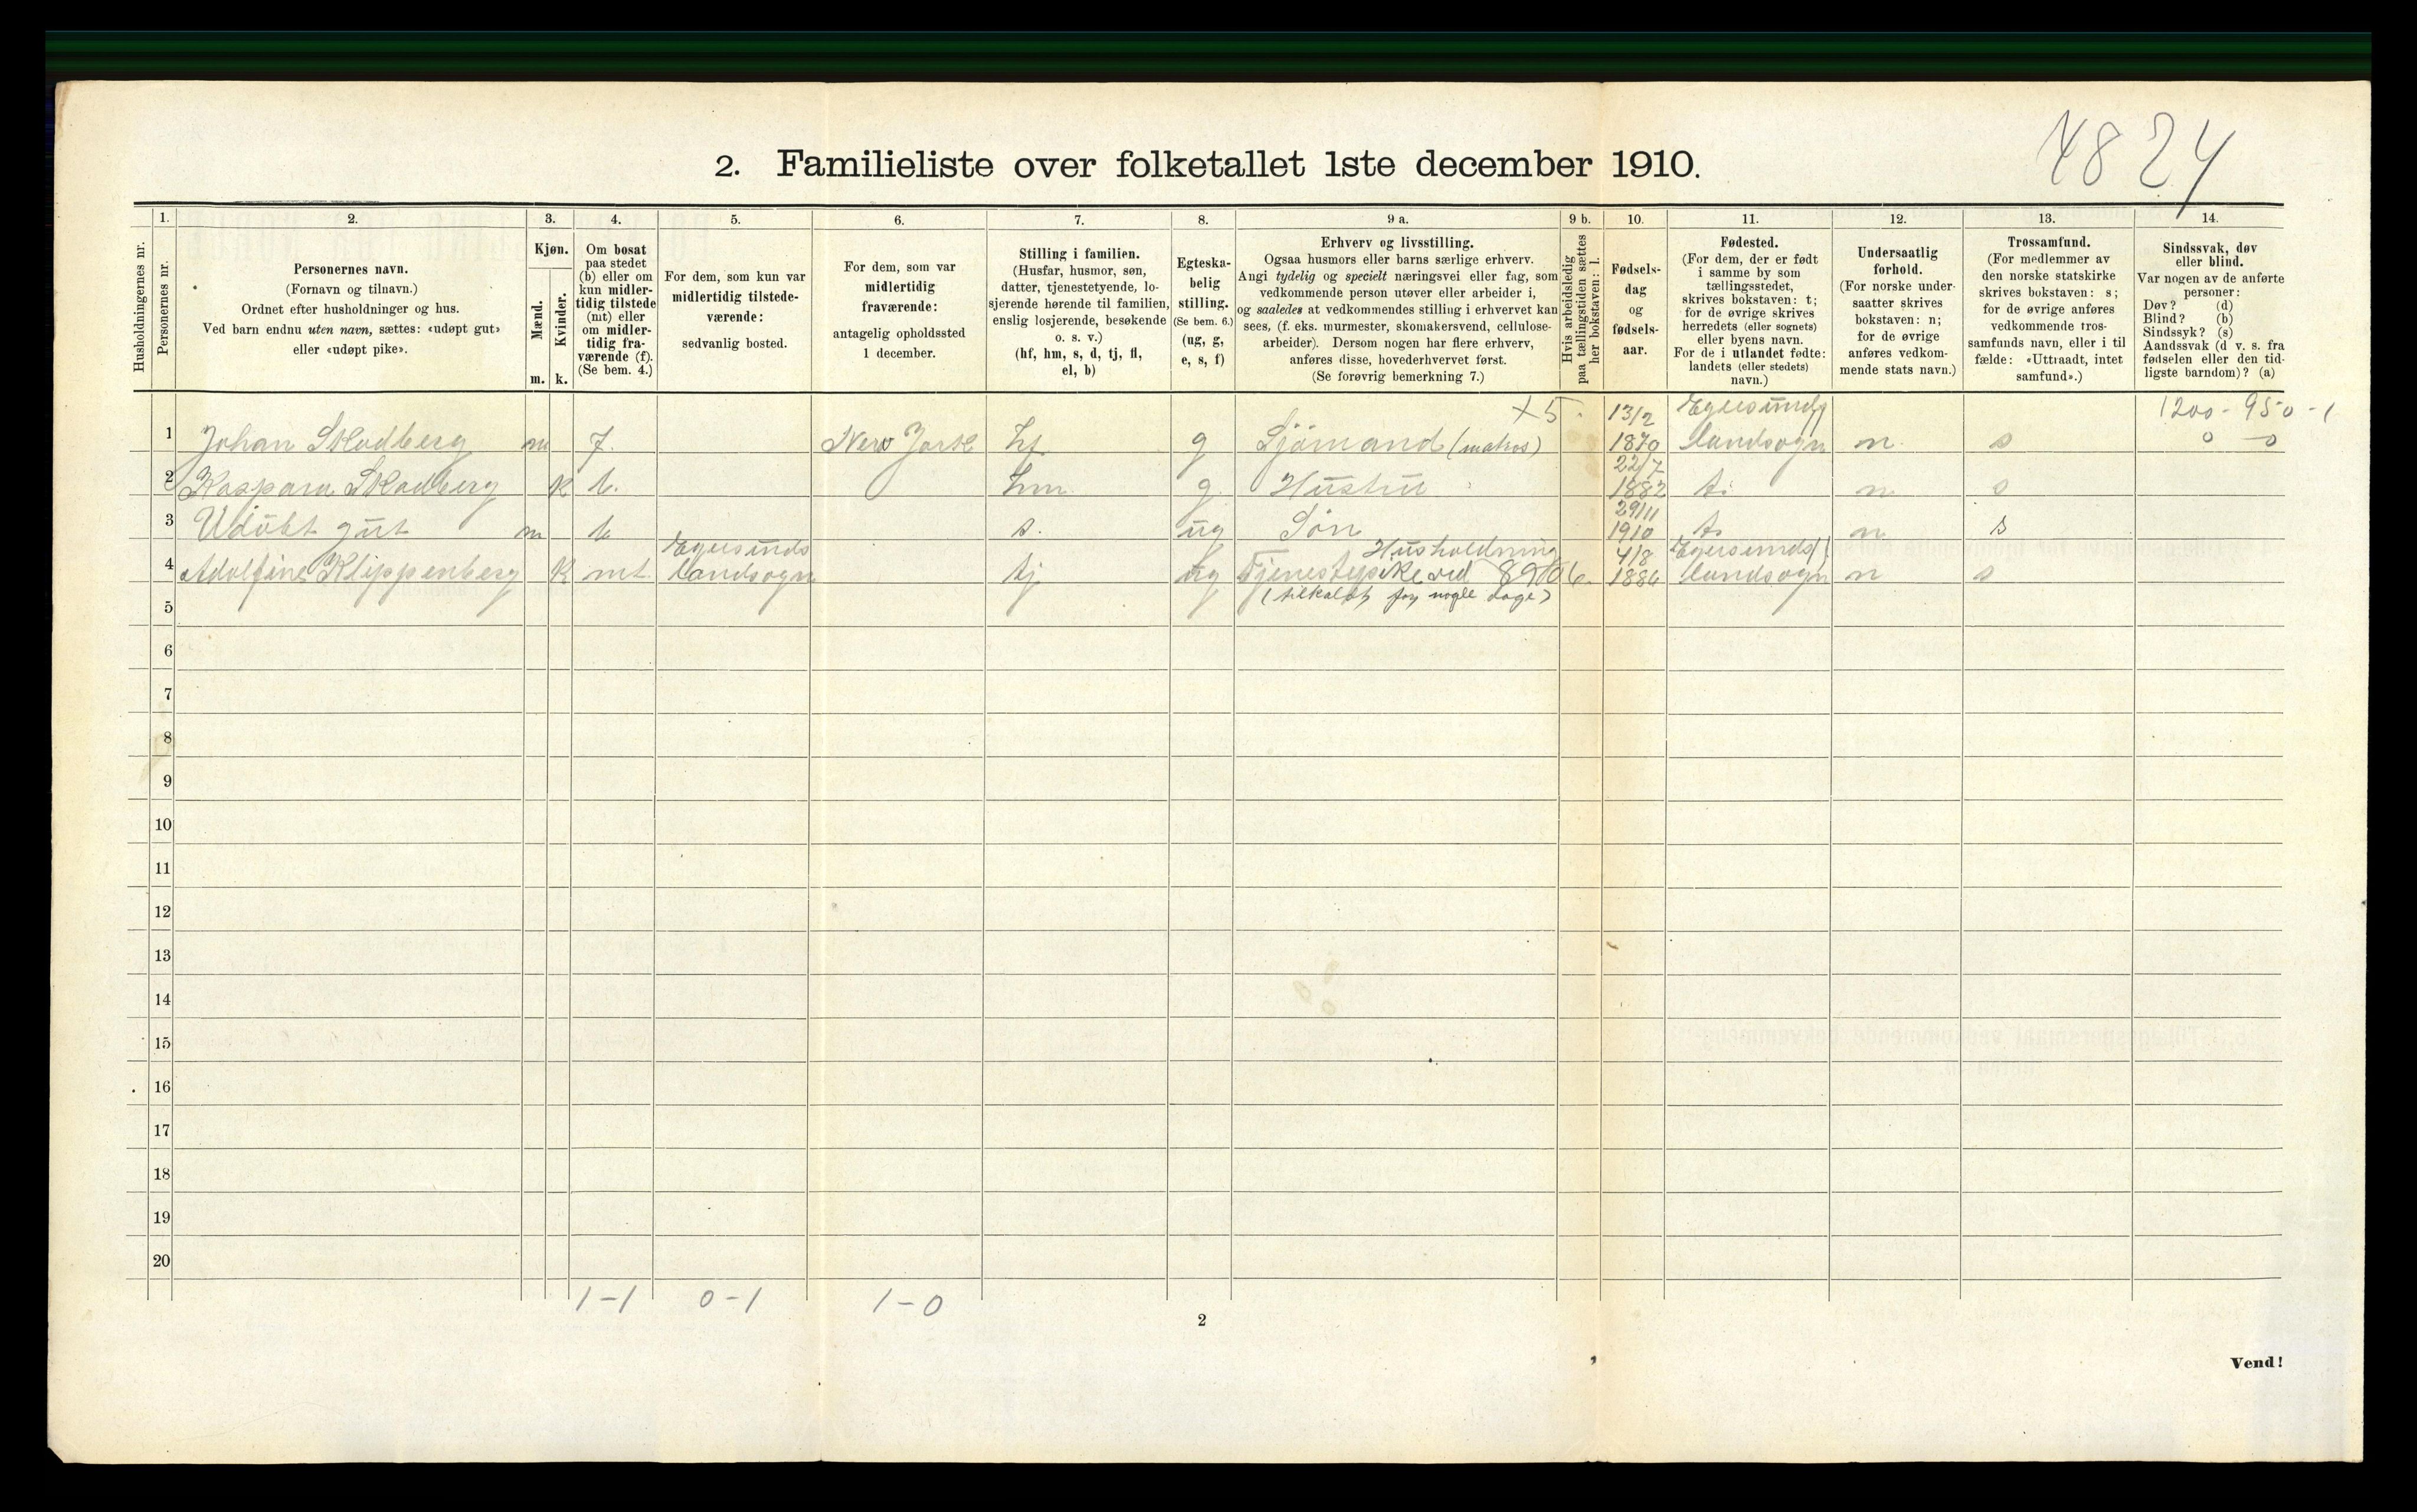 4824
2. Familieliste over folketallet 1ste december 1910.
Husholdningernes nr.
1.
Personernes nr.
2.
Personernes navn.
(Fornavn og tilnavn.)
Ordnet efter husholdninger og hus.
Ved barn endnu uten navn, sættes: «udøpt gut»
eller «udøpt pike».
3.
Kjøn.
Mænd.
Kvinder.
m. k.
4.
Om bosat
paa stedet
(b) eller om
kun midler-
tidig tilstede
(mt) eller
om midler-
tidig fra-
værende (f).
(Se bem. 4.)
5.
For dem, som kun var
midlertidig tilstede-
værende:
sedvanlig bosted.
6.
For dem, som var
midlertidig
fraværende:
antagelig opholdssted
1 december.
7.
Stilling i familien.
(Husfar, husmor, søn,
datter, tjenestetyende, lo-
sjerende hørende til familien,
enslig losjerende, besøkende
o. s. v.)
(hf, hm, s, d, tj, fl,
el, b)
8.
Egteska-
belig
stilling.
(Se bem. 6.)
(ug, g,
e, s, f)
9 a.
Erhverv og livsstilling.
Ogsaa husmors eller barns særlige erhverv.
Angi tydelig og specielt næringsvei eller fag, som
vedkommende person utøver eller arbeider i,
og saaledes at vedkommendes stilling i erhvervet kan
sees, (f. eks. murmester, skomakersvend, cellulose-
arbeider). Dersom nogen har flere erhverv,
anføres disse, hovederhvervet først.
(Se forøvrig bemerkning 7.)
9 b.
Hvis arbeidsledig
paa tællingstiden sættes
her bokstaven: l.
10.
Fødsels-
dag
og
fødsels-
aar.
11.
Fødested.
(For dem, der er født
i samme by som
tællingsstedet,
skrives bokstaven: t;
for de øvrige skrives
herredets (eller sognets)
eller byens navn.
For de i utlandet fødte:
landets (eller stedets)
navn.)
12.
Undersaatlig
forhold.
(For norske under-
saatter skrives
bokstaven: n;
for de øvrige
anføres vedkom-
mende stats navn.)
13.
Trossamfund.
(For medlemmer av
den norske statskirke
skrives bokstaven: s;
for de øvrige anføres
vedkommende tros-
samfunds navn, eller i til
fælde: «Uttraadt, intet
samfund».)
14.
Sindssvak, døv
eller blind.
Var nogen av de anførte
personer:
Døv? (d)
Blind? (b)
Sindssyk? (s)
Aandssvak (d v. s. fra
fødselen eller den tid-
ligste barndom)? (a)
x5. 13/2 Egersunds 1200-950-1
1 Johan Skadberg m f. New York hf g Sjömand (matros) 1870 landsogn n. s 0 0
22/7
2 Kaspara Skadberg k b. hm. g. Hustru 1882 do n s
29/11
3 Udöbt gut m b s. ug Sön 1910 do n s
Egersunds Husholdning 4/8 Egersunds
4 Adolfine Klippenberg k mt. landsogn tj ug Tjenestepike ved 1886 landsogn n s
5 (tilkaldt for nogle dage)
6
7
8
9
10
11
12
13
14
15
16
17
18
19
20
1-1 0-1 1-0
2
Vend!